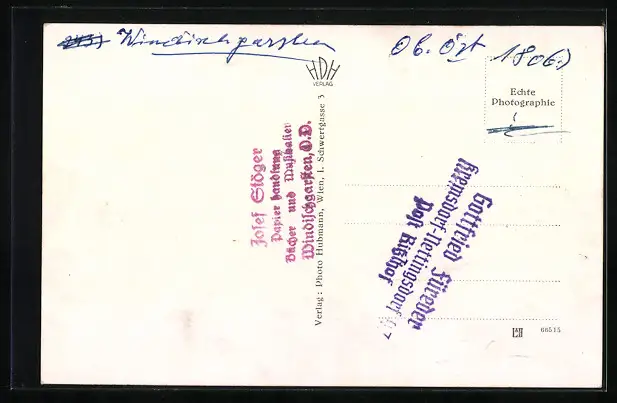 Windischgarsten
Ob. Öst 1806)
HDH
VERLAG
Echte
Photographie
Josef Stöger
Papierhandlung
Bücher und Musikalien
Windischgarsten, O.D.
Verlag: Photo Hubmann, Wien, I. Schwertgasse 3
Gottfried
Kremsdorf-Nettingsdorf
Post
66515